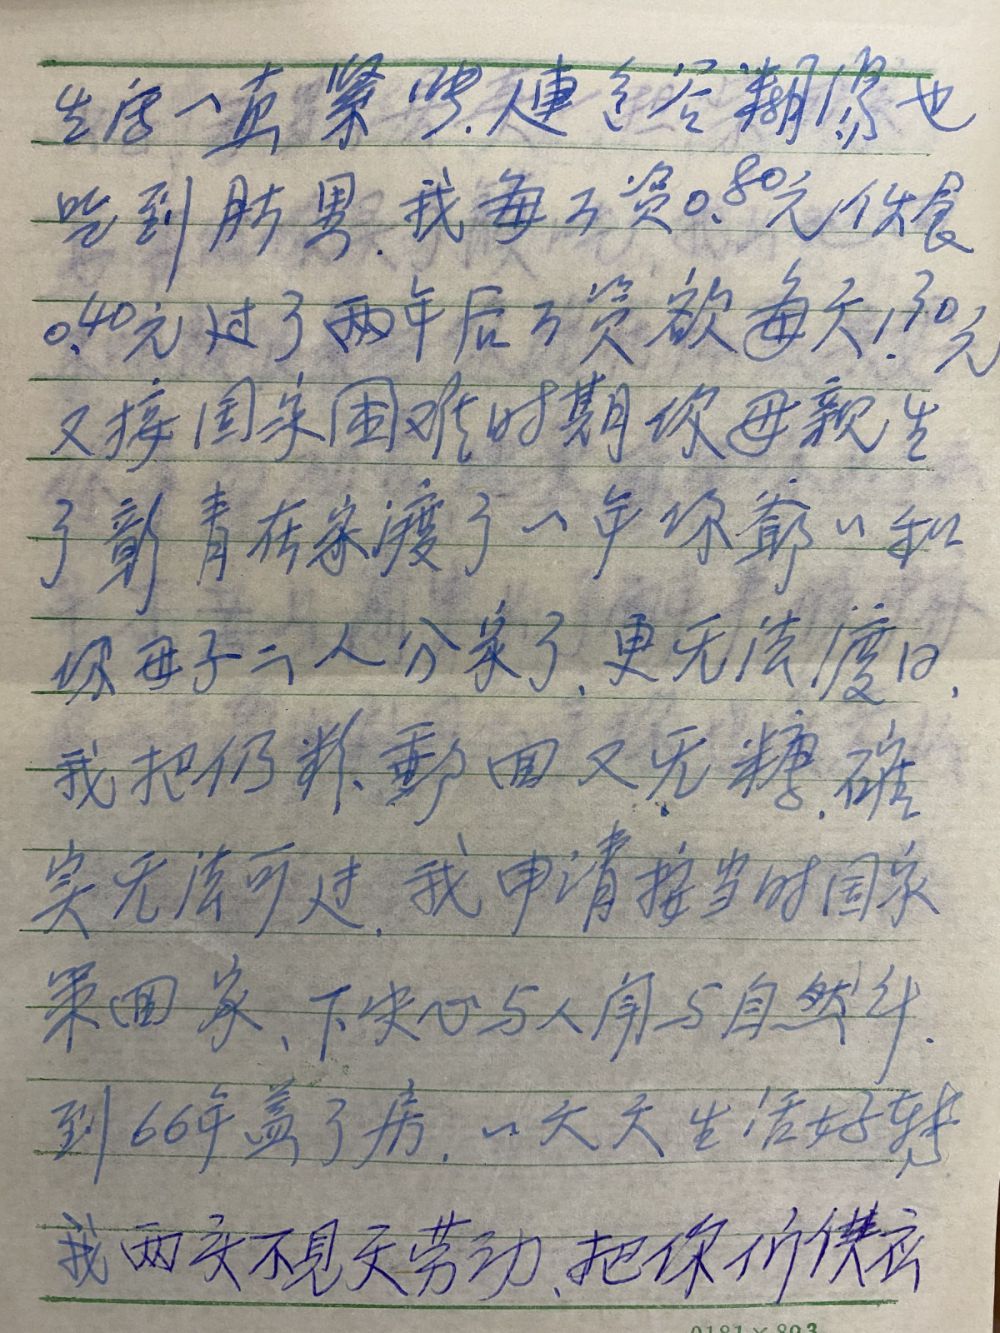 生活一直紧张,連包谷糊浆也
吃到肚里.我每工资0.80元伙食
0.40元过了两年后工资款每天1.30元
又接国家困难时期你母親生
了彰青在家渡了一年你爺〃和
你母子二人分家了.更无法度日,
我把仍粮票郵回又无糖.確
实无法可过.我申请按当时国家
策回家、下决心与人闹与自然斗.
到66年蓋了房.一天天生活好轉
我两亥不見天劳动、把你们供衣
0181×803